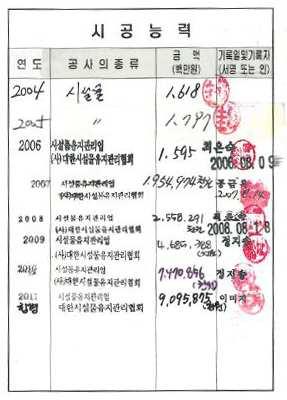 시공능력
연도 공사의종류 금액 (백만원) 기록일및기록자 (서명 또는 인)
2004 시설물 1,618
2005 〃 1,787
2006 시설물유지관리업 1.595 최은숙
(사)대한시설물유지관리협회 2006.08.09
2007 시설물유지관리업 1,954,974
(사)대한시설물유지관리협회
2008 시설물유지관리업 2,558,291
(사)대한시설물유지관리협회 2008.08.18
2009 시설물유지관리업 4,685,388 정지슬
(사)대한시설물유지관리협회
2010 시설물유지관리업 7,470,856 정지슬
(사)대한시설물유지관리협회
2011 시설물유지관리업 9,095,875 이미지
합병 대한시설물유지관리협회